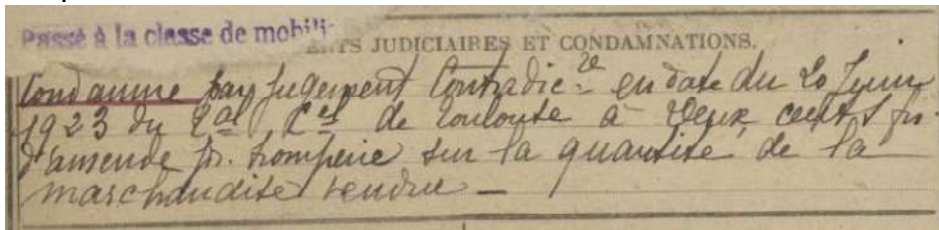 Passé à la classe de mobili
NTS JUDICIAIRES ET CONDAMNATIONS.
Condamné par jugement Contradic.re en date du 20 Juin
1923 du Tal Cel de Toulouse à Deux cents frs
d'amende pr. tromperie sur la quantité de la
marchandise vendue —